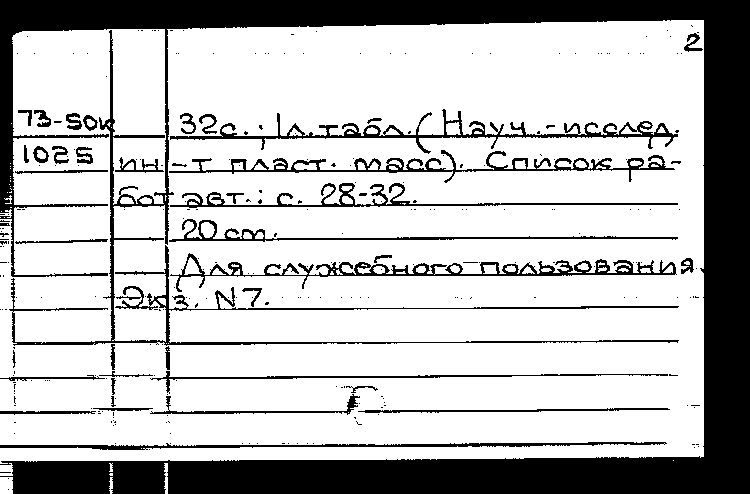 2
73-50к 32с.; 1л. табл. (Науч.-исслед.
1025 ин-т пласт. масс). Список ра-
бот авт.: с. 28-32.
20 cm.
Для служебного пользования.
Экз. N7.